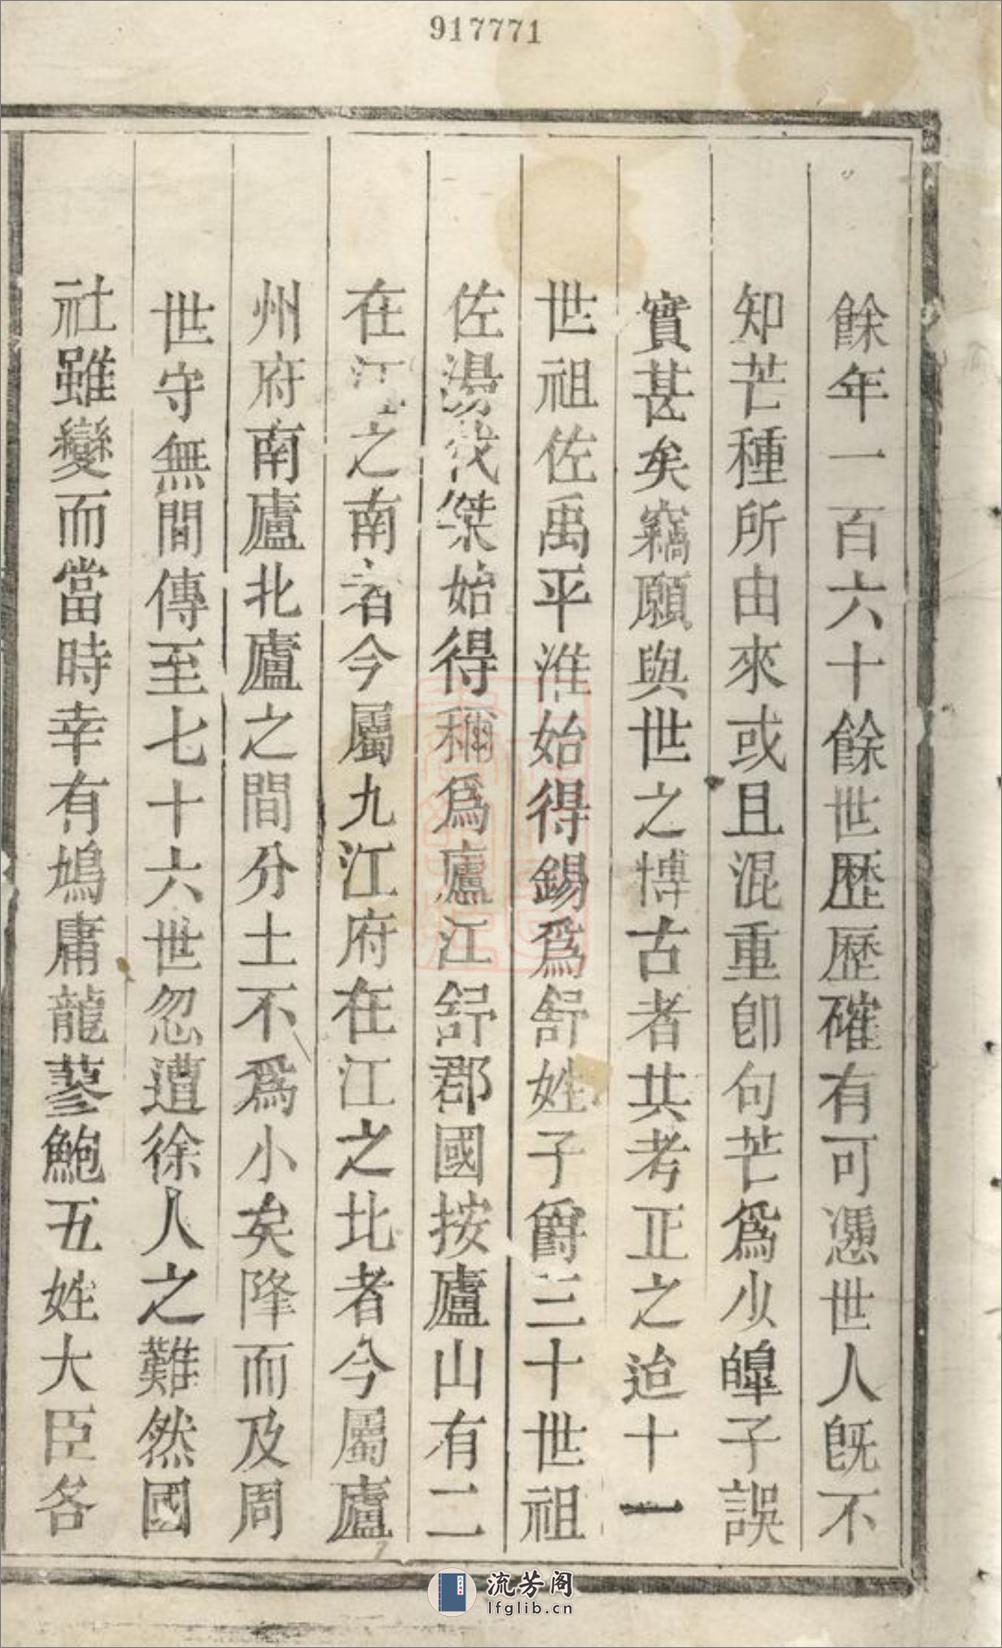 917771
餘年一百六十餘世歷歷確有可憑世人旣不
知芒種所由來或且混重卽句芒爲少皥子誤
實甚矣竊願與世之博古者共考正之迨十一
世祖佐禹平淮始得錫爲舒姓子爵三十世祖
佐湯伐桀始得稱爲廬江舒郡國按廬山有二
在江之南者今屬九江府在江之北者今屬廬
州府南廬北廬之間分土不爲小矣降而及周
世守無間傳至七十六世忽遭徐人之難然國
社雖變而當時幸有鳩庸龍蓼鮑五姓大臣各
流芳阁
lfglib.cn